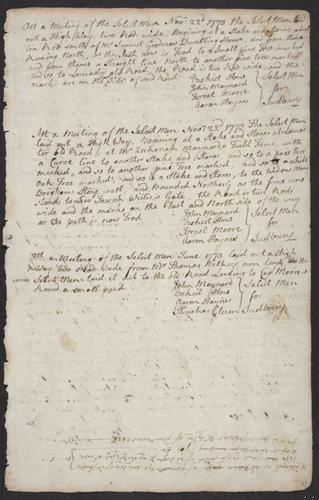 Att a Meeting of the Select Men Nov.r 22.d 1773 The Select Men laid
out a High Way, two Rods wide, Begining at a Stake and Stones about
ten Rod South of Mr Samuel Dwelling House, and from thence
Runing North, as the Path now is Trod to a Small Pine tree marked
and from thence a Straight line North to another pine tree marked
and so to Lancaster old Road, the Road is two Rod wide and the
mark are on the Side of said Road
Ezekiel How
John Maynard
Israel Moore
Aaron Haynes
Select Men
for
Sudbury
Att a Meeting of the Select Men Nov.r 22.d 1773 The Select Men
laid out a High Way, Begining at a Stake and Stones at Lancas-
ter old Road, at Mr Zechariah Maynards Field Home, with
a Curve line to another Stake and Stones, and so to a tree
marked, and so to another pine tree marked, and so to a white
Oak tree marked, and so to a Stake and Stones, to the Widow Mary
Brighams Stone wall and Bounded Northerly as the fence now
Stands to Lieu Joseph Willis's Gate the Road is two Rods
wide and the marks on the East and North side of the way
as the path is now Trod
John Maynard
Ezekiel How
Israel Moore
Aaron Haynes
Select Men
for
Sudbury
Att a Meeting of the Select Men June 1773 laid out a High
Way two Rod wide from Mr Thomas Walkers own land
Select Men laid it out to the Road Leading to Cap Moores
Round a small pond
John Maynard
Ezekiel How
Aaron Haynes
Phinehas Glezen
Select Men
for
Sudbury